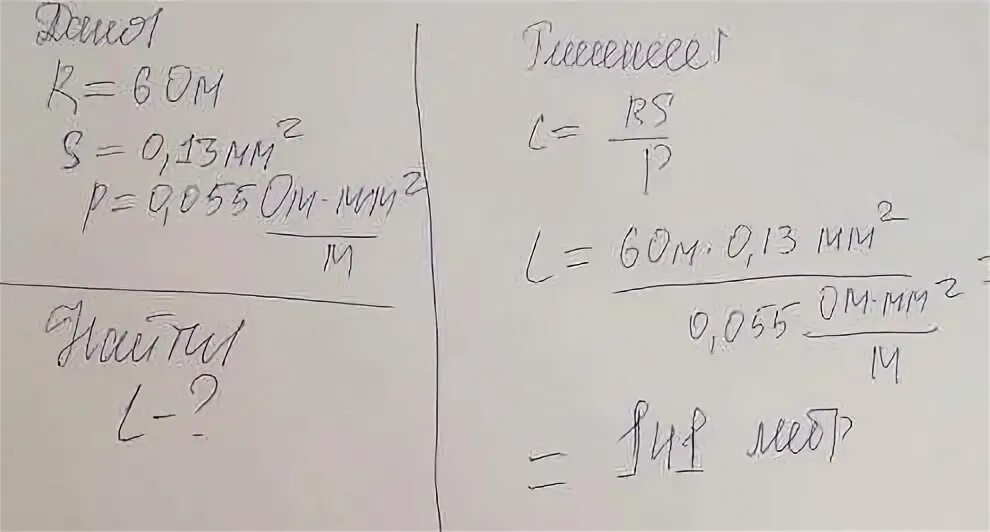 Дано
R = 6 Ом
S = 0,13 мм²
р = 0,055 Ом·мм²
М
Найти
L - ?
Решение
L = RS
р
L = 6 Ом · 0,13 мм² =
0,055 Ом·мм²
М
= 141 метр